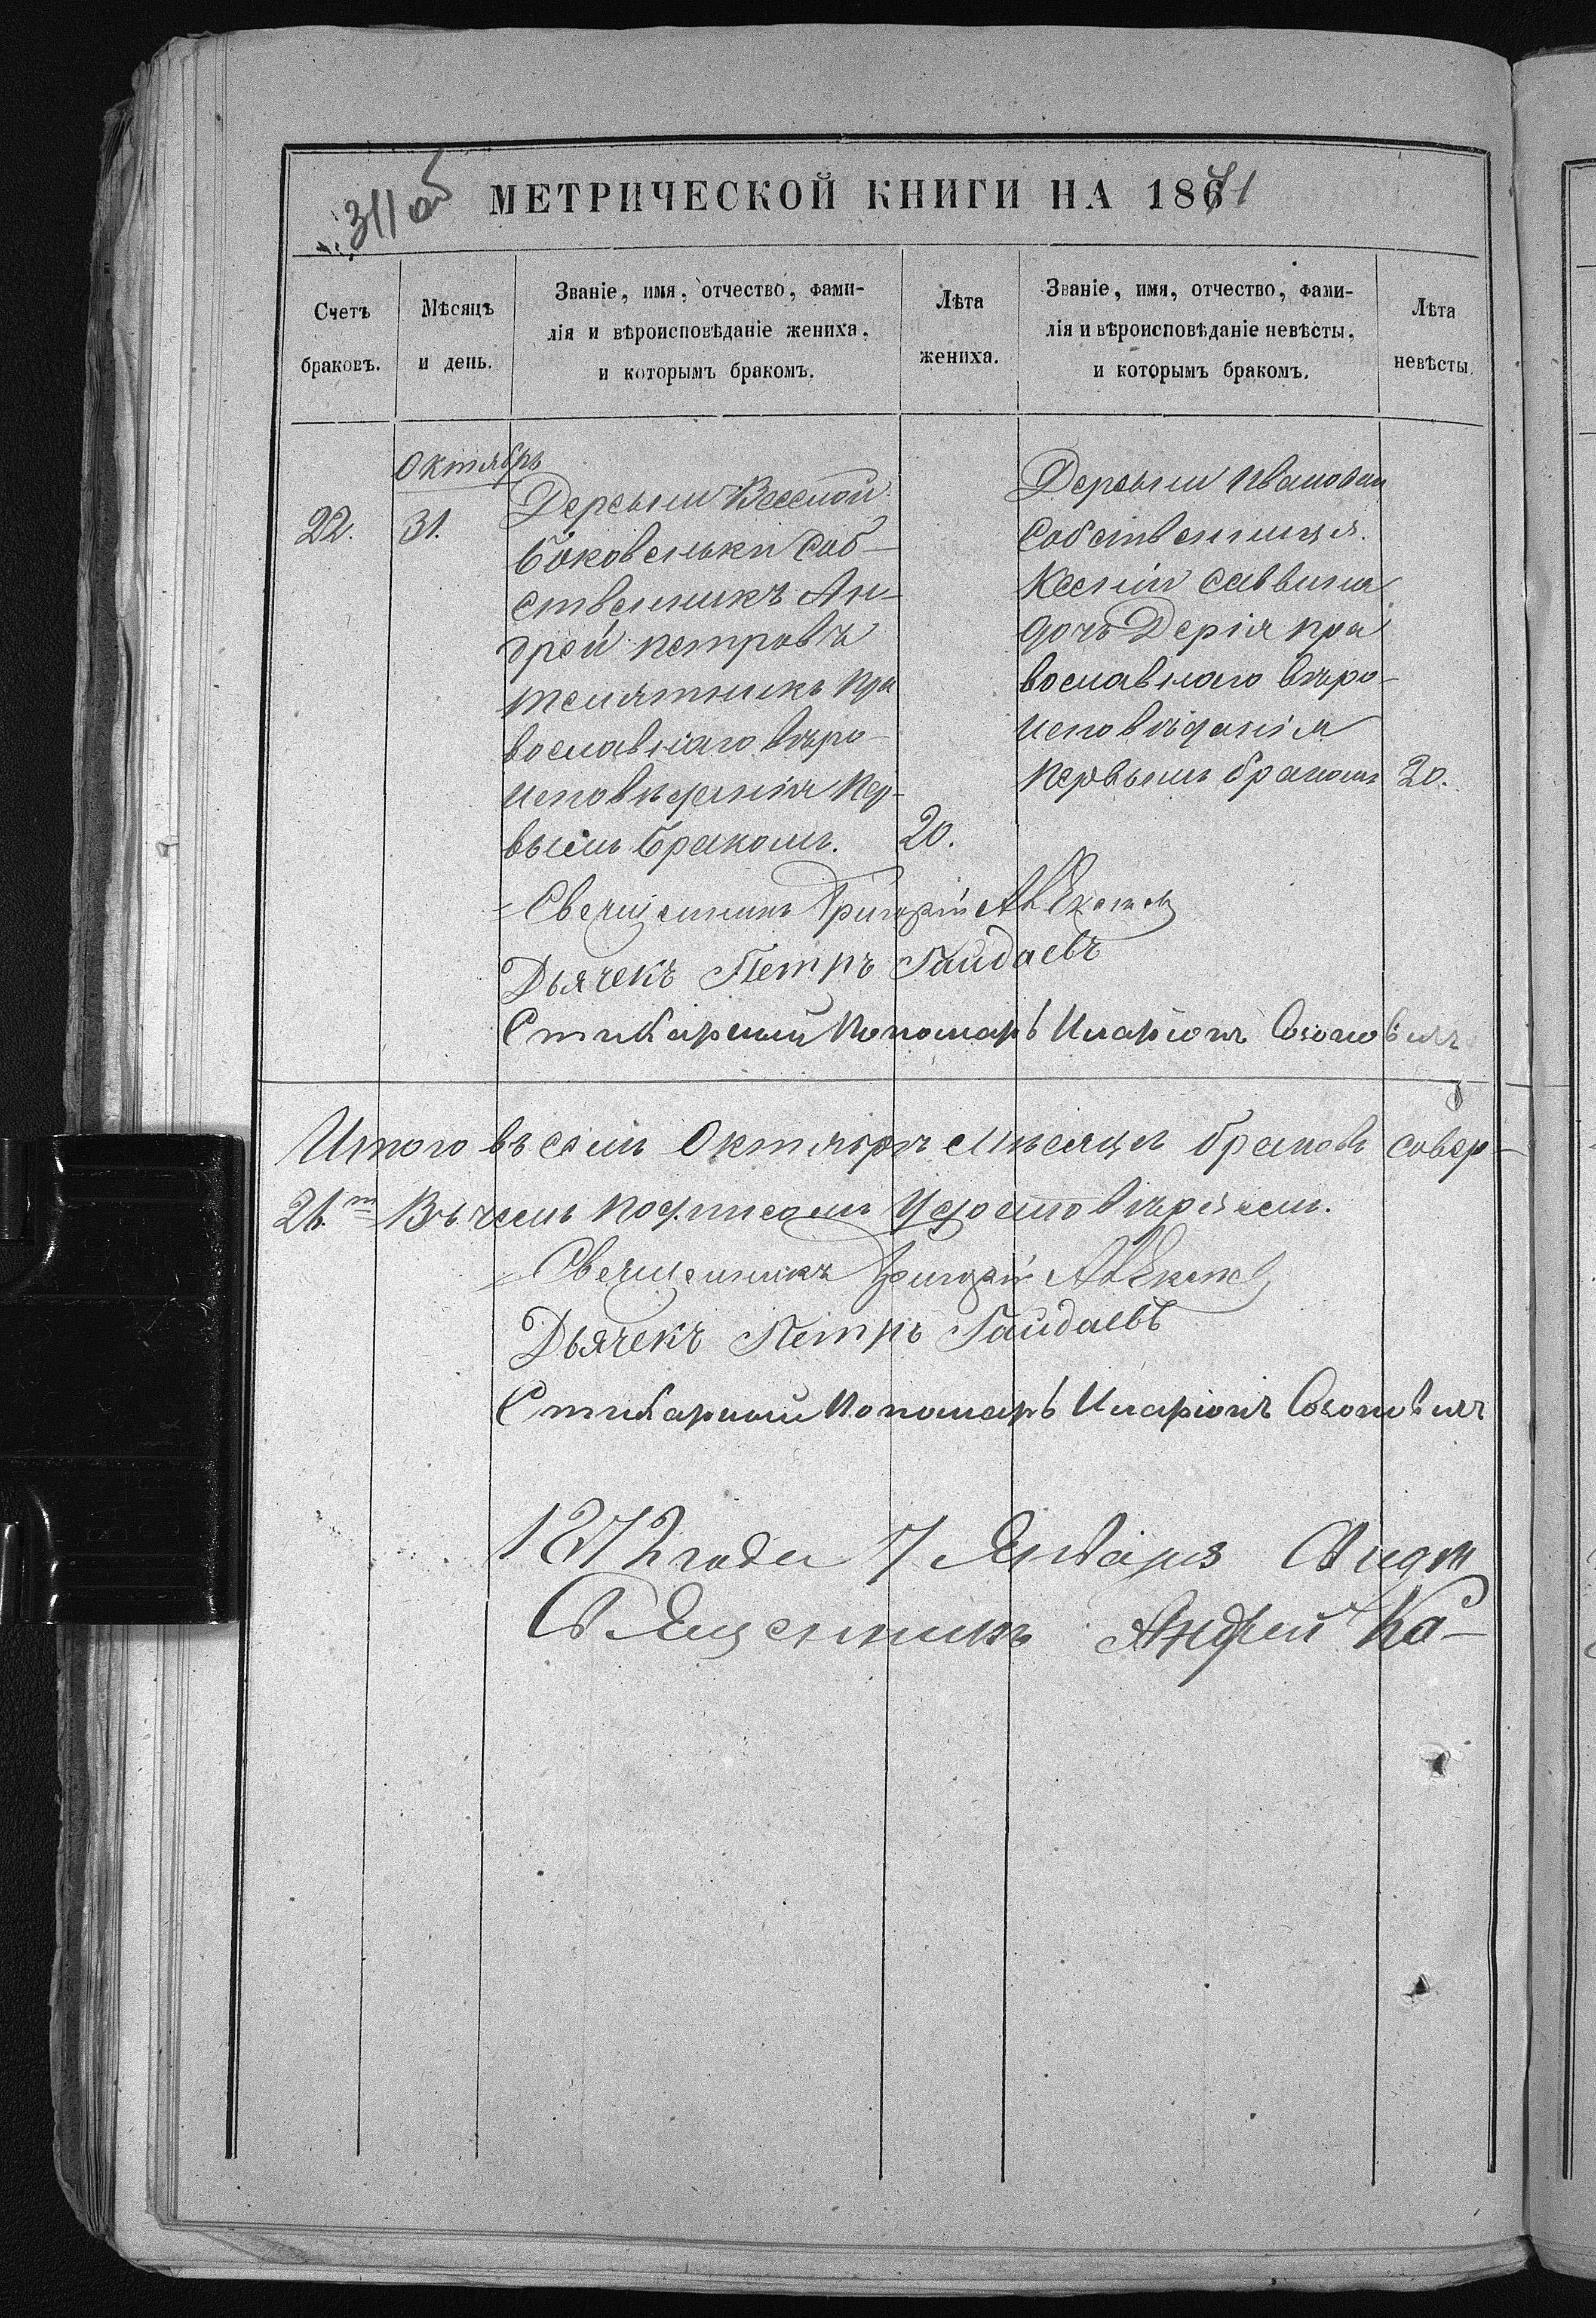 311 об
МЕТРИЧЕСКОЙ КНИГИ НА 1871
Счетъ браковъ.
Мѣсяцъ и день.
Званіе, имя, отчество, фами-
лія и вѣроисповѣданіе жениха,
и которымъ бракомъ.
Лѣта жениха.
Званіе, имя, отчество, фами-
лія и вѣроисповѣданіе невѣсты,
и которымъ бракомъ.
Лѣта невѣсты.
Октябрь
22.
31.
Деревни Веселой
Боковеньки соб-
ственникъ Ан-
дрей Петровъ
Телятникъ пра
вославнаго вѣро-
исповѣданія пер-
вымъ бракомъ.
20.
Деревни Ивановки
собственница
Ксенія Саввина
дочь пра
вославнаго вѣро-
исповѣданія
первымъ бракомъ
20.
Священникъ Григорій
Дьячекъ Петръ Гайдаевъ
Стихарный Пономарь Иларіонъ
Итого въ семъ Октябрѣ мѣсяцѣ браковъ совер-
Въ чемъ подписомъ удостовѣряемъ.
Священникъ Григорій
Дьячекъ Петръ Гайдаевъ
Стихарный Пономарь Иларіонъ
1872 года 7 Января
Священникъ Андрей Ко-